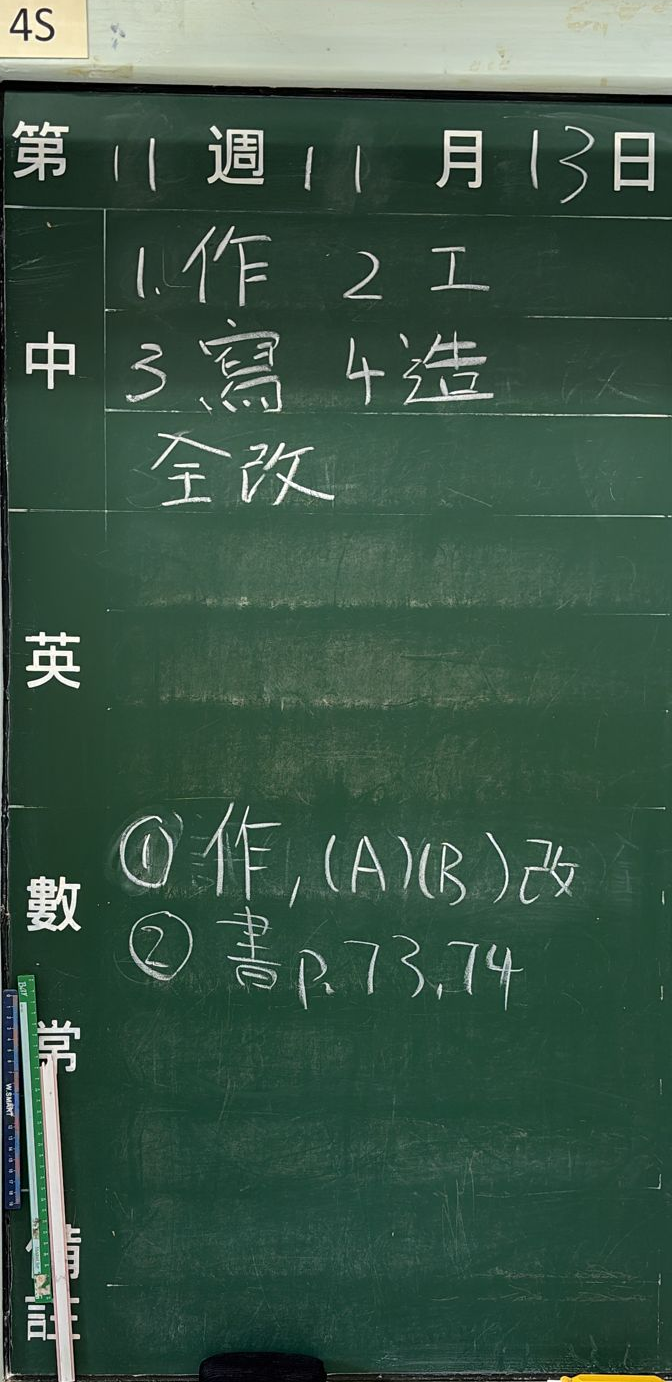 4S
第 11 週 11 月 13 日
中
1.作 2 工
3 寫 4 造
全改
英
數
① 作,(A)(B)改
② 書p.73,74
常
備註